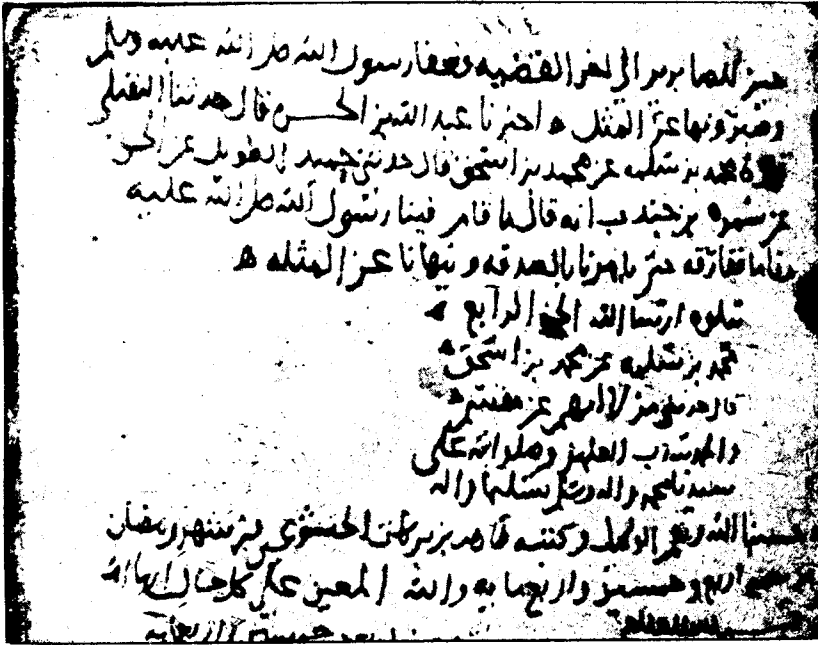 خير للصابرين الى اخر القصه فعفا رسول الله صلى الله عليه وسلم
وصبر ونها عن المثل ه اخبرنا عبد الله بن الحسن قال حدثنا النفيلي
محمد بن سلمه عن محمد بن اسحق قال حدثني حميد الطويل عن الحسن
عن سمره بن جندب انه قال ما قام فينا رسول الله صلى الله عليه
مقاما ففارقه حتى يامرنا بالصدقه وينهانا عن المثله ه
يتلوه ان شا الله الجز الرابع
محمد بن سلمه عن محمد بن اسحق
قال حدثني من لا اتهم عن مقسم
والحمد لله رب العلمين وصلواته على
سيدنا محمد واله وسلم تسليما
حسبنا الله ونعم الوكيل وكتبه طاهر بن بركات الخشوعي في شهر رمضان
من سنه اربع وخمسين واربعمايه والله المعين على كل حال ان شا الله